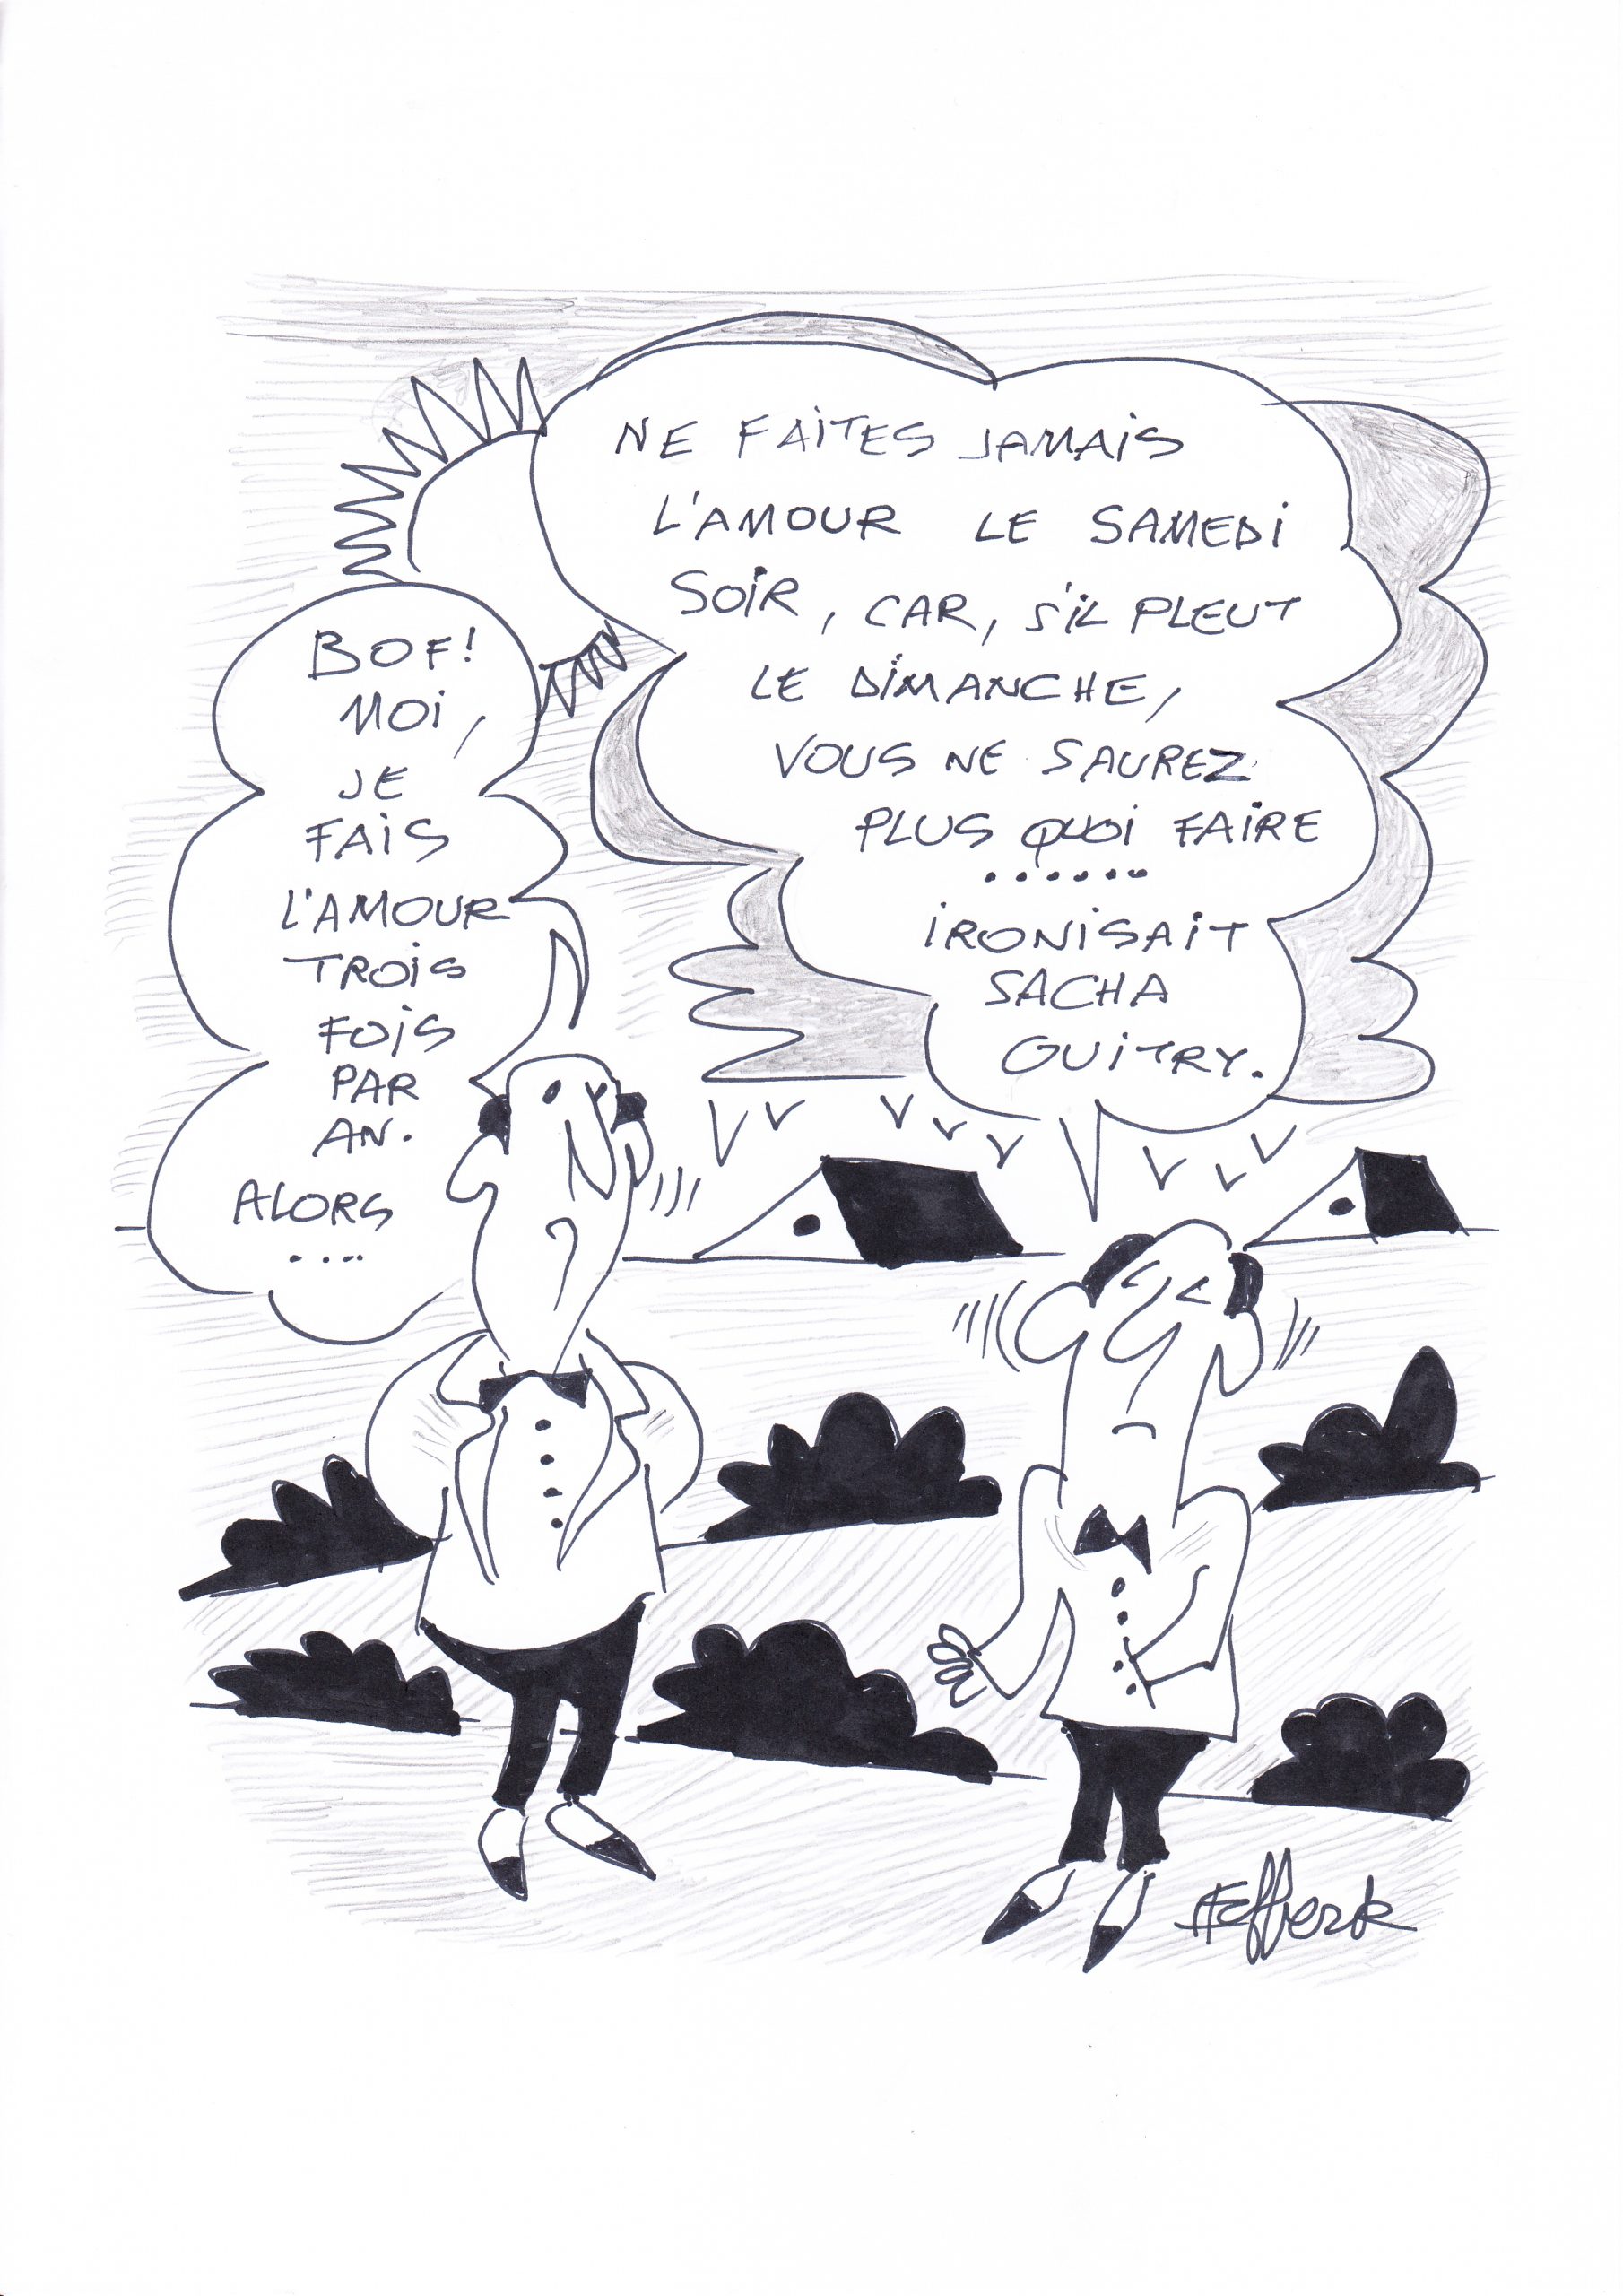 NE FAITES JAMAIS
L'AMOUR LE SAMEDI
SOIR, CAR, S'IL PLEUT
LE DIMANCHE,
VOUS NE SAUREZ
PLUS QUOI FAIRE
......
IRONISAIT
SACHA
GUITRY.
BOF!
MOI,
JE
FAIS
L'AMOUR
TROIS
FOIS
PAR
AN.
ALORS
....